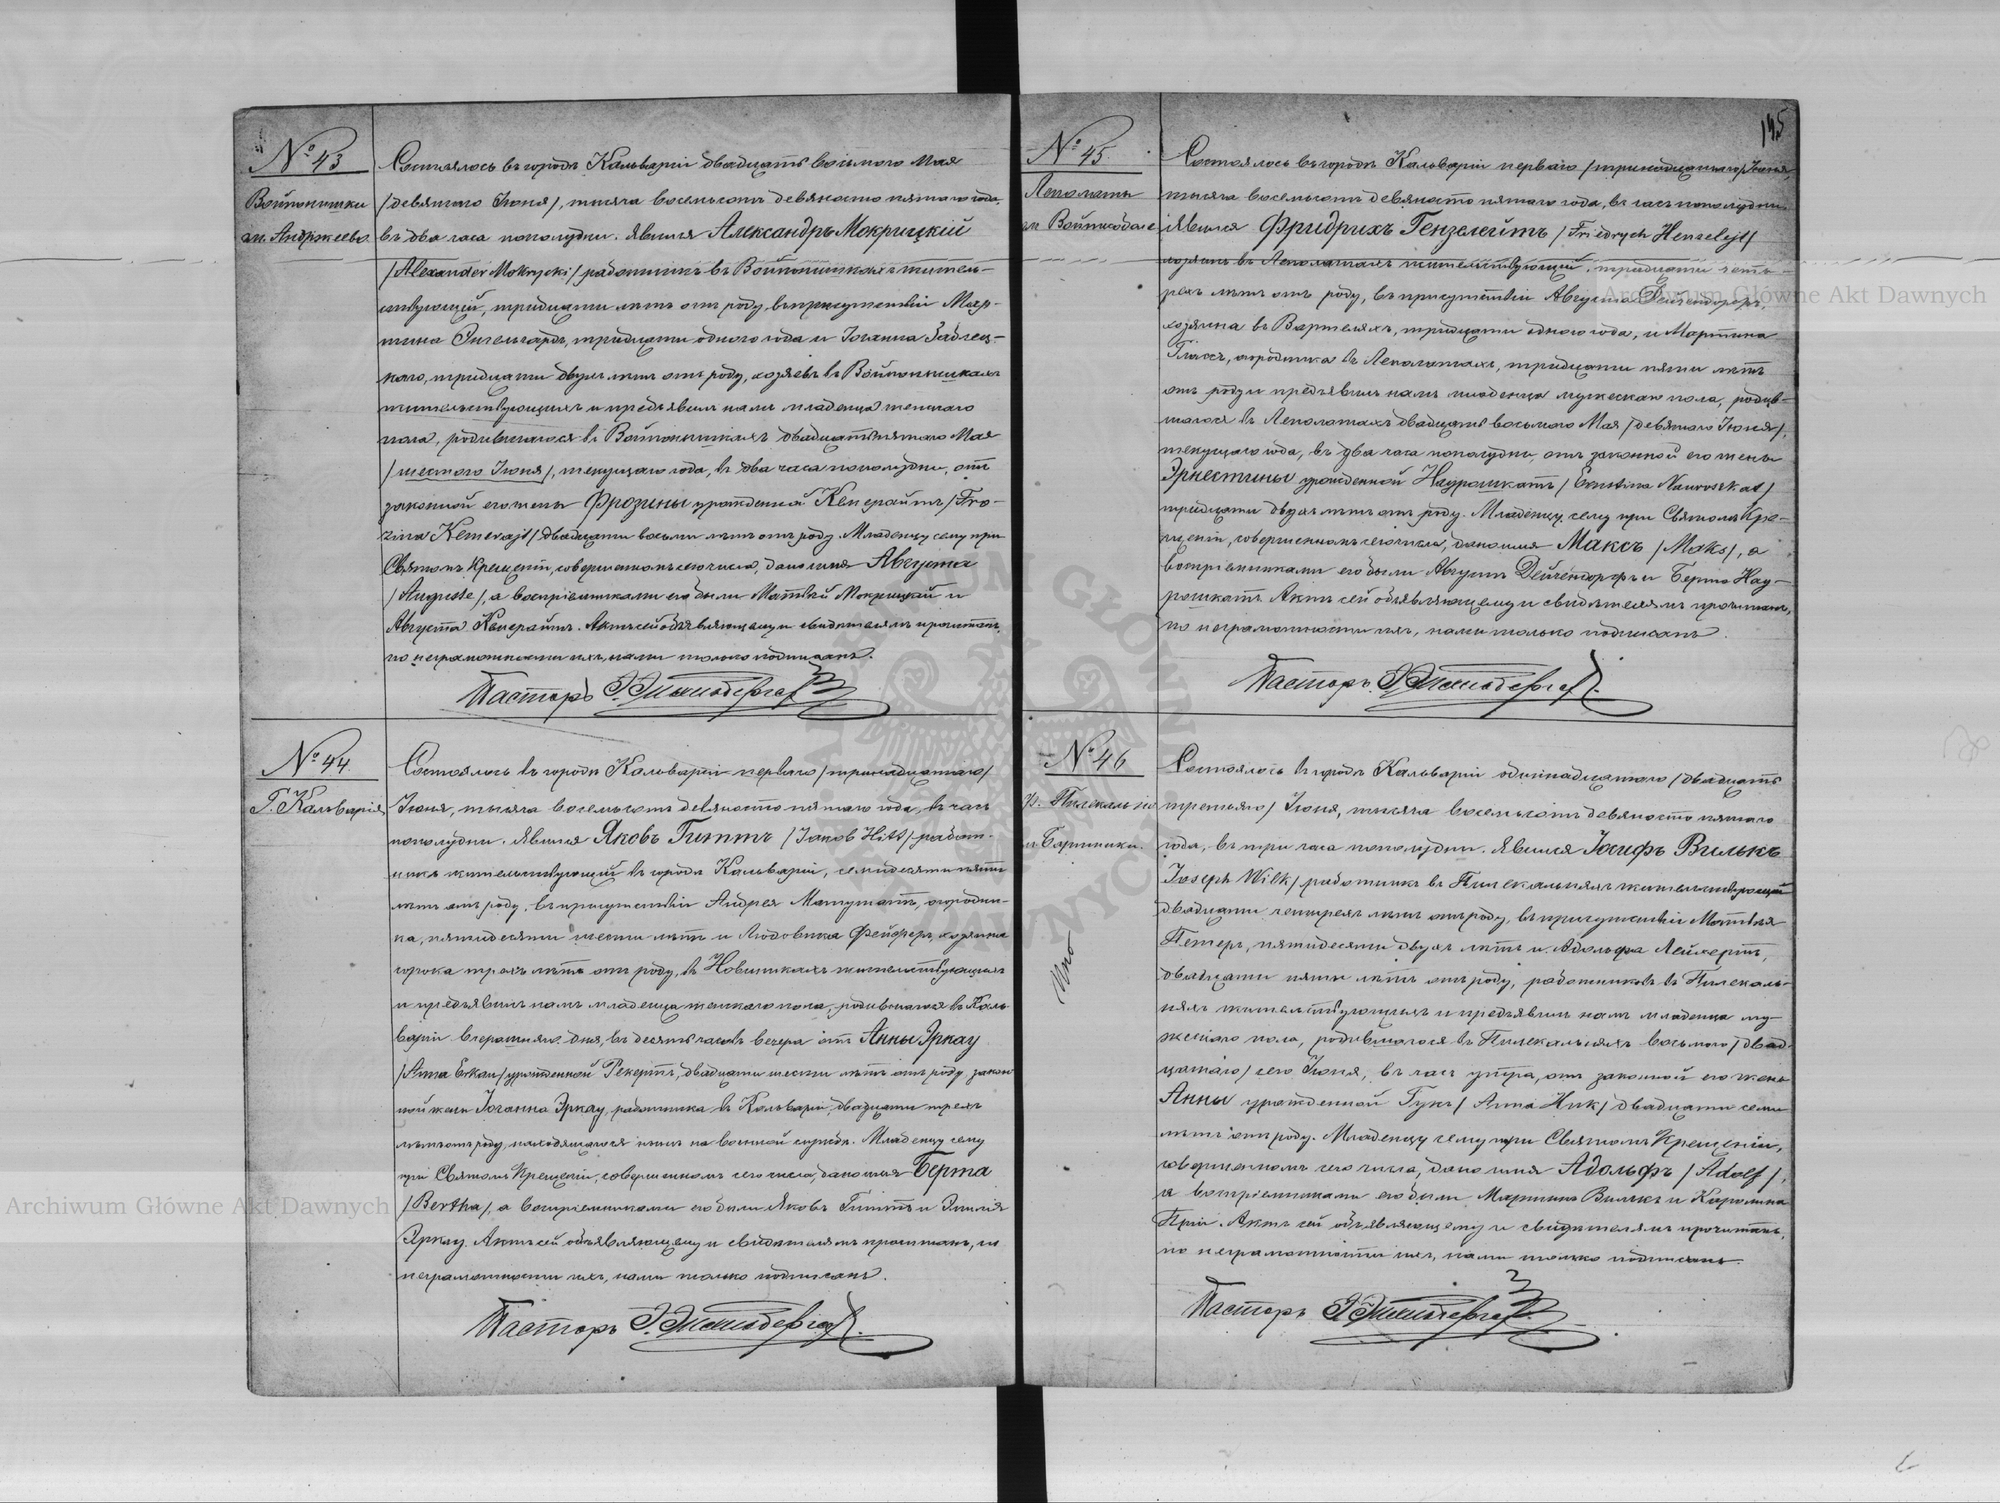 № 43
Войпонишки
гм. Андржеево.
Состоялось въ городѣ Кальваріи двадцать восьмого Мая
/девятого Іюня/, тысяча восемьсотъ девяносто пятаго года,
въ два часа пополудни. Явился Александръ Мокрицкій
/Alexander Mokrycki/ работникъ въ Войпонишкахъ житель-
ствующій, тридцати лѣтъ отъ роду, въ присутствіи Мар-
тина Энгельгардъ, тридцати одного года и Іоганна Заблец-
каго, тридцати двухъ лѣтъ отъ роду, хозяевъ въ Войпонишкахъ
жительствующихъ и предъявилъ намъ младенца женскаго
пола, родившагося въ Войпонишкахъ двадцать пятаго Мая
/шестого Іюня/, текущаго года, въ два часа пополудни, отъ
законной его жены Фрозины урожденной Кемерайтъ /Fro-
zina Kemerajt/ двадцати восьми лѣтъ отъ роду. Младенцу сему при
Святомъ Крещеніи, совершенномъ сего числа, дано имя Августа
/Auguste/, а воспріемниками его были Матвѣй Мокрицкій и
Августа Кемерайтъ. Актъ сей объявляющему и свидѣтелямъ прочитанъ,
по неграмотности ихъ, нами только подписанъ.
Пасторъ
№ 44.
Г. Кальварія
Состоялось въ городѣ Кальваріи перваго /тринадцатаго/
Іюня, тысяча восемьсотъ девяносто пятаго года, въ часъ
пополудни. Явился Яковъ Гиттъ /Jakob Hitt/ работ-
никъ жительствующій въ городѣ Кальваріи, семидесяти пяти
лѣтъ отъ роду, въ присутствіи Андрея Матушатъ, огородни-
ка, пятидесяти шести лѣтъ и Людовика Фейферъ, хозяина
сорока трехъ лѣтъ отъ роду, въ Новишкахъ жительствующихъ
и предъявилъ намъ младенца женскаго пола, родившагося въ Каль-
варіи вчерашняго дня, въ десять часовъ вечера отъ Анны Эркау
/Anna Erkau/ урожденной Рекертъ, двадцати шести лѣтъ отъ роду, закон-
ной жены Іоганна Эркау, работника въ Кальваріи, двадцати трехъ
лѣтъ отъ роду, находящагося нынѣ на военной службѣ. Младенцу сему
при Святомъ Крещеніи, совершенномъ сего числа, дано имя Берта
/Bertha/, а воспріемниками его были Яковъ Гиттъ и Эмилія
Эркау. Актъ сей объявляющему и свидѣтелямъ прочитанъ, по
неграмотности ихъ, нами только подписанъ.
Пасторъ
145
№ 45.
Леполаты
гм Войткоболе
Состоялось въ городѣ Кальваріи перваго /тринадцатаго/ Іюня,
тысяча восемьсотъ девяносто пятаго года, въ часъ пополудни.
Явился Фридрихъ Гензелейтъ /Friedrych Henzelejt/
хозяинъ въ Леполатахъ жительствующій, тридцати четы-
рехъ лѣтъ отъ роду, въ присутствіи Августа Дейчендорфъ,
хозяина въ Вартеляхъ, тридцати одного года, и Мартина
огродника въ Леполатахъ, тридцати пяти лѣтъ
отъ роду и предъявилъ намъ младенца мужескаго пола, родив-
шагося въ Леполатахъ двадцать восьмого Мая /девятого Іюня/,
текущаго года, въ два часа пополудни, отъ законной его жены
Эрнестины урожденной Наурошкатъ /Ernstina Nauroszkat/
тридцати двухъ лѣтъ отъ роду. Младенцу сему при Святомъ Кре-
щеніи, совершенномъ сего числа, дано имя Максъ /Maks/, а
воспріемниками его были Августъ Дейчендорфъ и Берта Нау-
рошкатъ. Актъ сей объявляющему и свидѣтелямъ прочитанъ,
по неграмотности ихъ, нами только подписанъ.
Пасторъ
№ 46
Состоялось въ городѣ Кальваріи одинадцатаго /двадцать
третьяго/ Іюня, тысяча восемьсотъ девяносто пятаго
года, въ три часа пополудни. Явился Іосифъ Вилькъ
Joseph Wilk/ работникъ въ Пилекальняхъ жительствующій
двадцати четырехъ лѣтъ отъ роду, въ присутствіи Матвѣя
Петеръ, пятидесяти двухъ лѣтъ и Адольфа Лейхертъ,
двадцати пяти лѣтъ отъ роду, работниковъ въ Пилекаль-
няхъ жительствующихъ и предъявилъ намъ младенца му-
жескаго пола, родившагося въ Пилекальняхъ восьмого /двад-
цатаго/ сего Іюня, въ часъ утра, отъ законной его жены
Анны урожденной Гукъ /Anna Huk/ двадцати семи
лѣтъ отъ роду. Младенцу сему при Святомъ Крещеніи,
совершенномъ сего числа, дано имя Адольфъ /Adolf/,
а воспріемниками его были Мартинъ Вилькъ и Каролина
Актъ сей объявляющему и свидѣтелямъ прочитанъ,
по неграмотности ихъ, нами только подписанъ.
Пасторъ
Archiwum Główne Akt Dawnych
Archiwum Główne Akt Dawnych